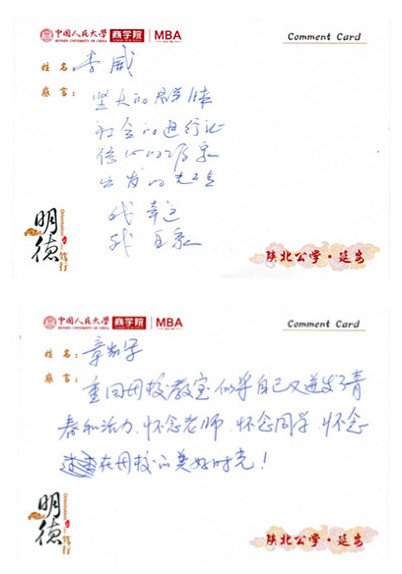 中国人民大学 商学院 MBA
RENMIN UNIVERSITY OF CHINA
Comment Card
姓 名：李威
感 言：
坚大的尽头体
社会的通行证
信心的源泉
出发的起点
我幸运
我自豪
明德
笃行
陕北公学·延安
中国人民大学 商学院 MBA
RENMIN UNIVERSITY OF CHINA
Comment Card
姓 名：章
感 言：
重回母校教室似乎自己又迸发了青
春和活力，怀念老师，怀念同学，怀念
在母校的美好时光！
明德
笃行
陕北公学·延安